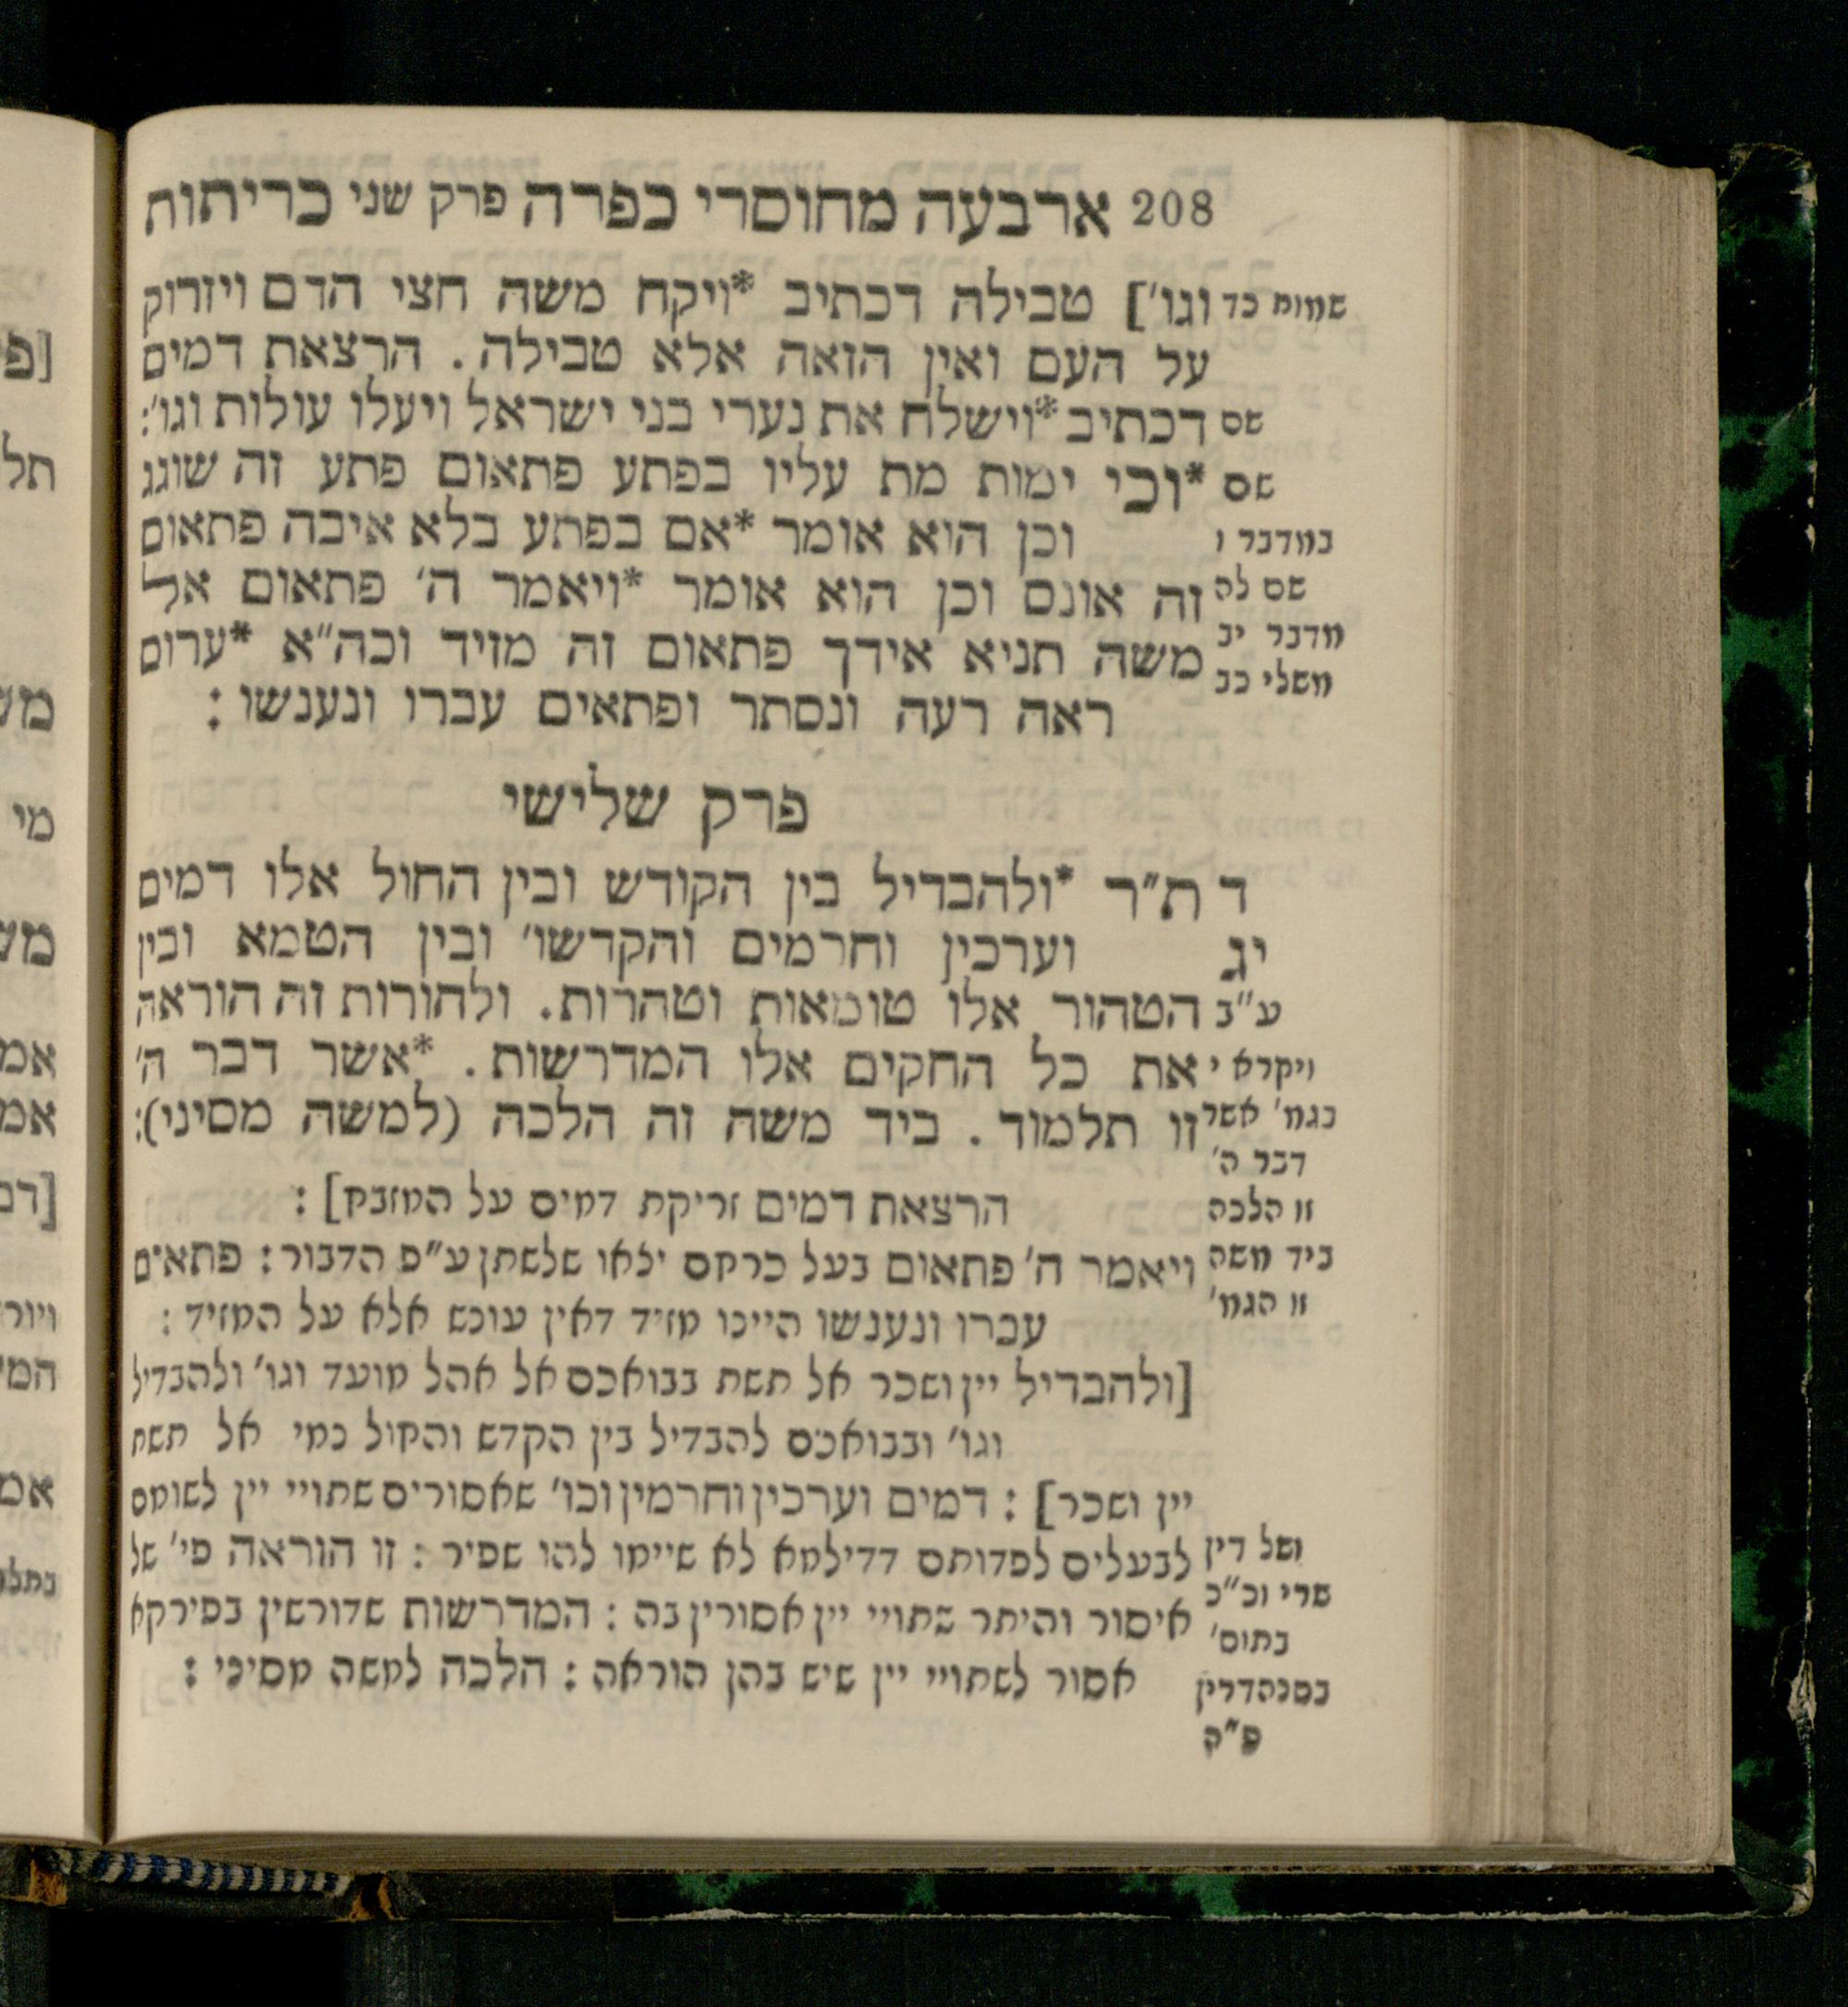 208 ארבעה מחוסרי כפרה פרק שני כריתות
שמות כד וגו׳] טבילה דכתיב *ויקח משה חצי הדם ויזרוק
על העם ואין הזאה אלא טבילה. הרצאת דמים
שם דכתיב *וישלח את נערי בני ישראל ויעלו עולות וגו׳:
שם *וכי ימות מת עליו בפתע פתאום פתע זה שוגג
במדבר ו וכן הוא אומר *אם בפתע בלא איבה פתאום
שם לה זה אונס וכן הוא אומר *ויאמר ה׳ פתאום אל
מדבר יב משה תניא אידך פתאום זה מזיד וכה״א *ערום
משלי כב ראה רעה ונסתר ופתאים עברו ונענשו:
פרק שלישי
ד ת״ר *ולהבדיל בין הקודש ובין החול אלו דמים
יג וערכין וחרמים והקדשו׳ ובין הטמא ובין
ע״ב הטהור אלו טומאות וטהרות. ולהורות זה הוראה
ויקרא י את כל החקים אלו המדרשות. *אשר דבר ה׳
בגמ׳ אשר זו תלמוד. ביד משה זה הלכה (למשה מסיני):
דבר ה׳
זו הלכה הרצאת דמים זריקת דמים על המזבח]:
ביד משה ויאמר ה׳ פתאום בעל כרחם יצאו שלשתן ע״פ הדבור: פתאים
זו הגמ׳ עברו ונענשו היינו מזיד דאין עונש אלא על המזיד:
[ולהבדיל יין ושכר אל תשת בבואכם אל אהל מועד וגו׳ ולהבדיל
וגו׳ ובבואכם להבדיל בין הקדש והחול כמי אל תשת
יין ושכר]: דמים וערכין וחרמין וכו׳ שאסורים שתויי יין לשומם
ושל דין לבעלים לפדותם דדילמא לא שיימו להו שפיר: זו הוראה פי׳ של
שרי וכ״כ איסור והיתר שתויי יין אסורין בה: המדרשות שדורשין בפירקא
בתוס׳
בסנהדרין אסור לשתויי יין שיש בהן הוראה: הלכה למשה מסיני:
פ״ה